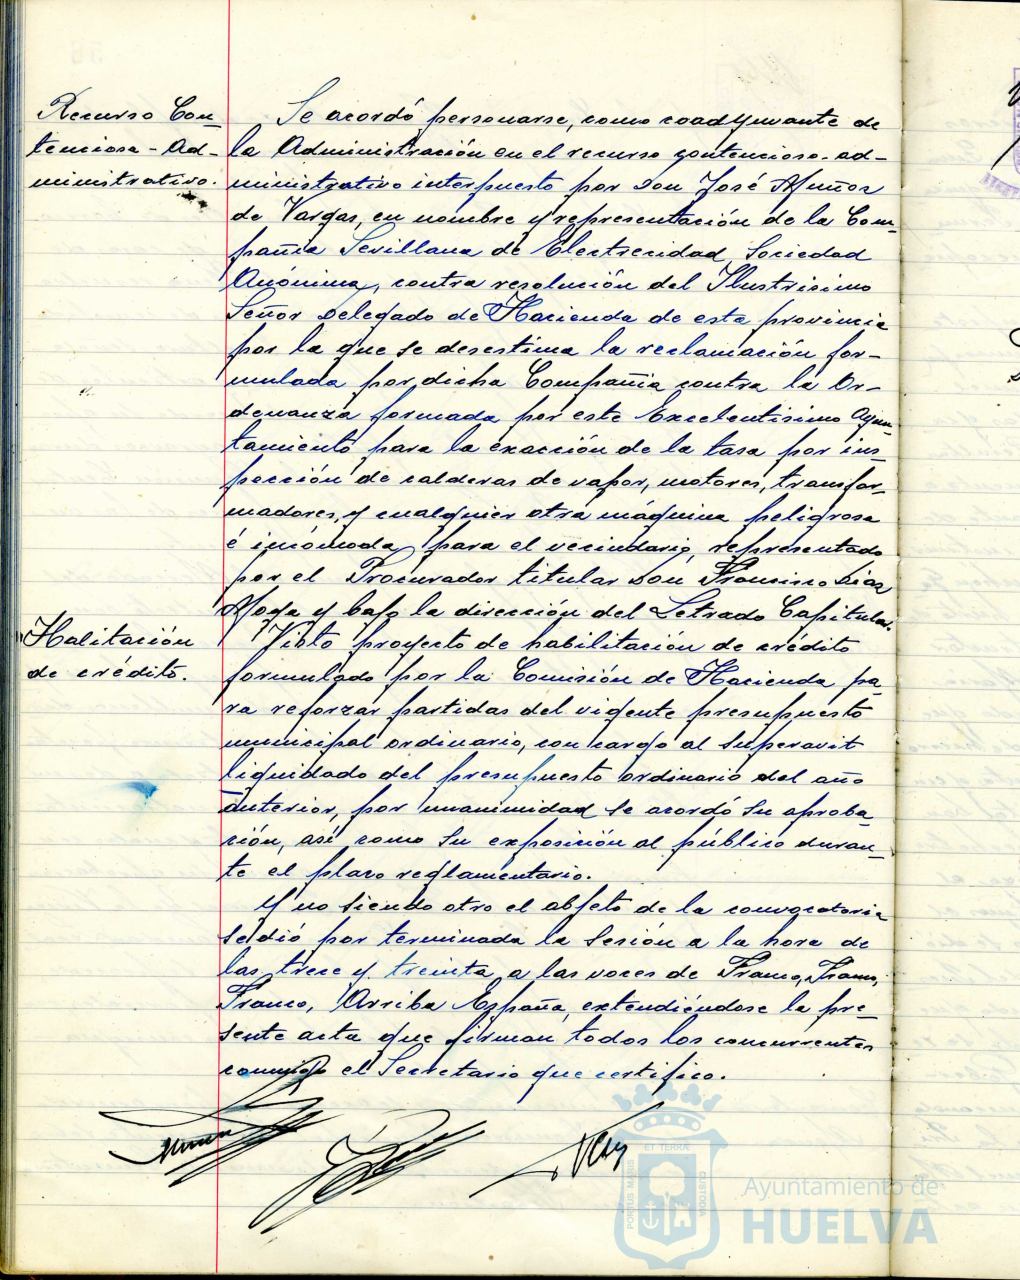 Recurso Con-
tencioso-Ad-
ministrativo.
Se acordó personarse, como coadyuvante de
la Administración en el recurso contencioso-ad-
ministrativo interpuesto por Don José Muñoz
de Vargas, en nombre y representación de la Com-
pañia Sevillana de Electrecidad, Sociedad
Anónima, contra resolución del Ilustrisimo
Señor Delegado de Hacienda de esta provincia
por la que se desestima la reclamación for-
mulada por dicha Compañia contra la Or-
denanza formada por este Excelentisimo Ayun-
tamiento para la exacción de la tasa por ins-
pección de calderas de vapor, motores, transfor-
madores, y cualquier otra máquina peligrosa
é incómoda para el vecindario, representado
por el Procurador titular Don Francisco Diaz
Moya y bajo la dirección del Letrado Capitular.
Halitación
de crédito.
Visto proyecto de habilitación de crédito
formulado por la Comisión de Hacienda pa-
ra reforzar partidas del vigente presupuesto
municipal ordinario, con cargo al superavit
liquidado del presupuesto ordinario del año
anterior, por unanimidad se acordó su aproba
ción, así como su exposición al público duran-
te el plazo reglamentario.
Y no siendo otro el objeto de la convocatoria
se dió por terminada la sesión a la hora de
las trece y treinta, a las voces de Franco, Franco,
Franco, Arriba España, extendiéndose la pre-
sente acta que firman todos los concurrentes
conmigo el Secretario que certifico.
ET TERRÆ
PORTUS MARIS
CUSTODIA
Ayuntamiento de
HUELVA